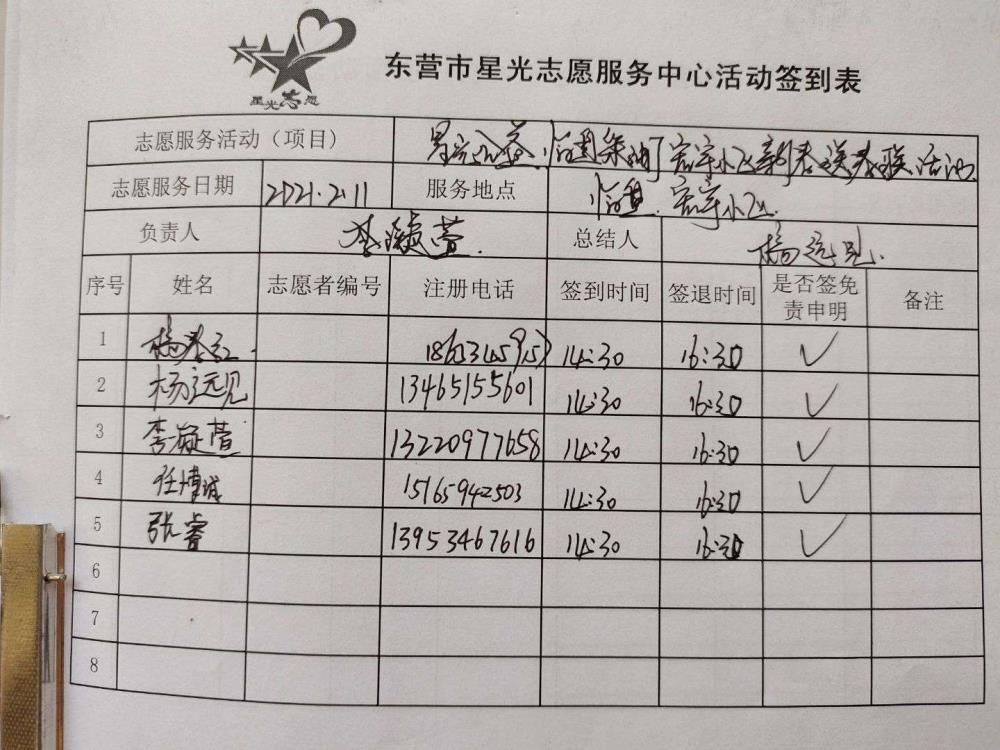 星光志愿
东营市星光志愿服务中心活动签到表
志愿服务活动（项目） 星光 小区新春送春联活动
志愿服务日期 2021.2.11 服务地点 小区
负责人 李凝萱 总结人 杨远见
序号 姓名 志愿者编号 注册电话 签到时间 签退时间 是否签免责申明 备注
1 杨春红 14:30 16:30 ✓
2 杨远见 13465155601 14:30 16:30 ✓
3 李凝萱 13220977658 14:30 16:30 ✓
4 任博诚 15165942503 14:30 16:30 ✓
5 张睿 13953467616 14:30 16:30 ✓
6
7
8